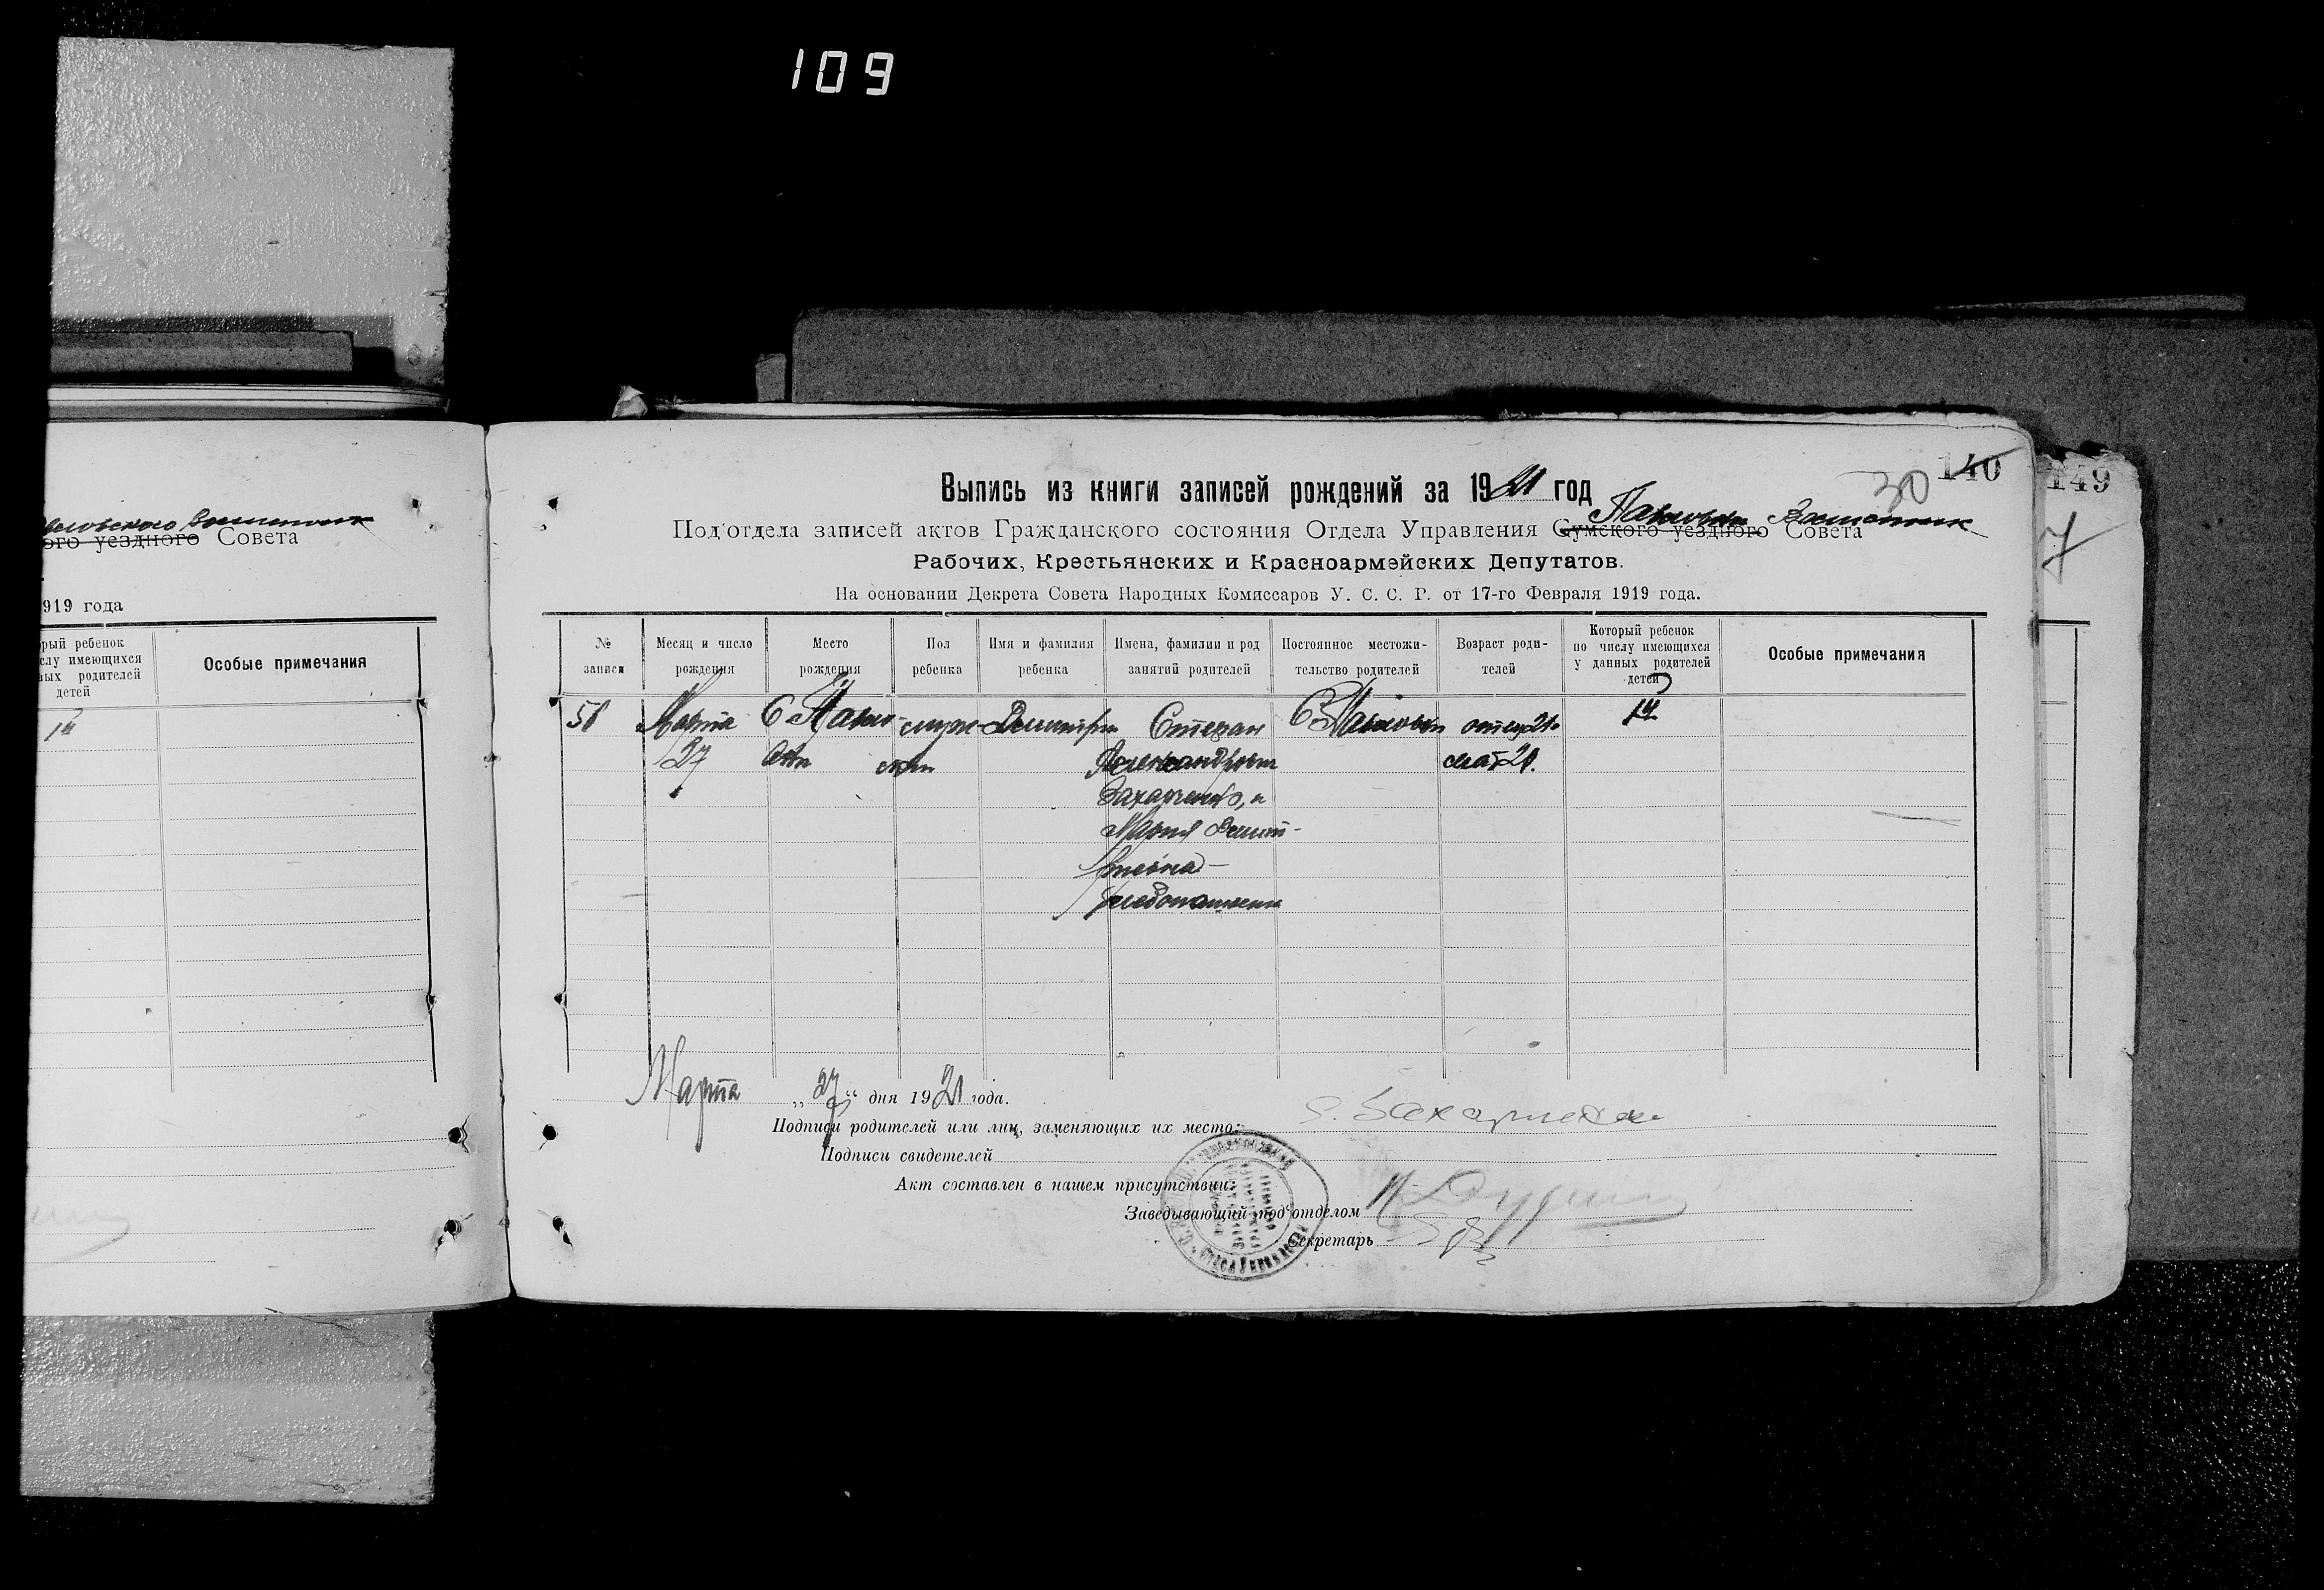 109
140
30
149
7
Выпись из книги записей рождений за 1921 год
Под'отдела записей актов Гражданского состояния Отдела Управления Сумского уездного Совета
Рабочих, Крестьянских и Красноармейских Депутатов.
На основании Декрета Совета Народных Комиссаров У. С. С. Р. от 17-го Февраля 1919 года.
ого уездного Совета
919 года
рый ребенок
слу имеющихся
ных родителей
детей
Особые примечания
1й
№ записи
Месяц и число рождения
Место рождения
Пол ребенка
Имя и фамилия ребенка
Имена, фамилии и род занятий родителей
Постоянное местожительство родителей
Возраст родителей
Который ребенок по числу имеющихся у данных родителей детей
Особые примечания
Марта С Павло- муж- Димитрий Степан С Павловки отец 21
27 вки ской Александрович мат 21.
Захарченко, и
Мария Димит-
риевна
хлебопашество
Марта „27“ дня 1921 года.
Подписи родителей или лиц, заменяющих их место: С. Захарченко
Подписи свидетелей
Акт составлен в нашем присутствии:
Заведывающий под'отделом
Секретарь